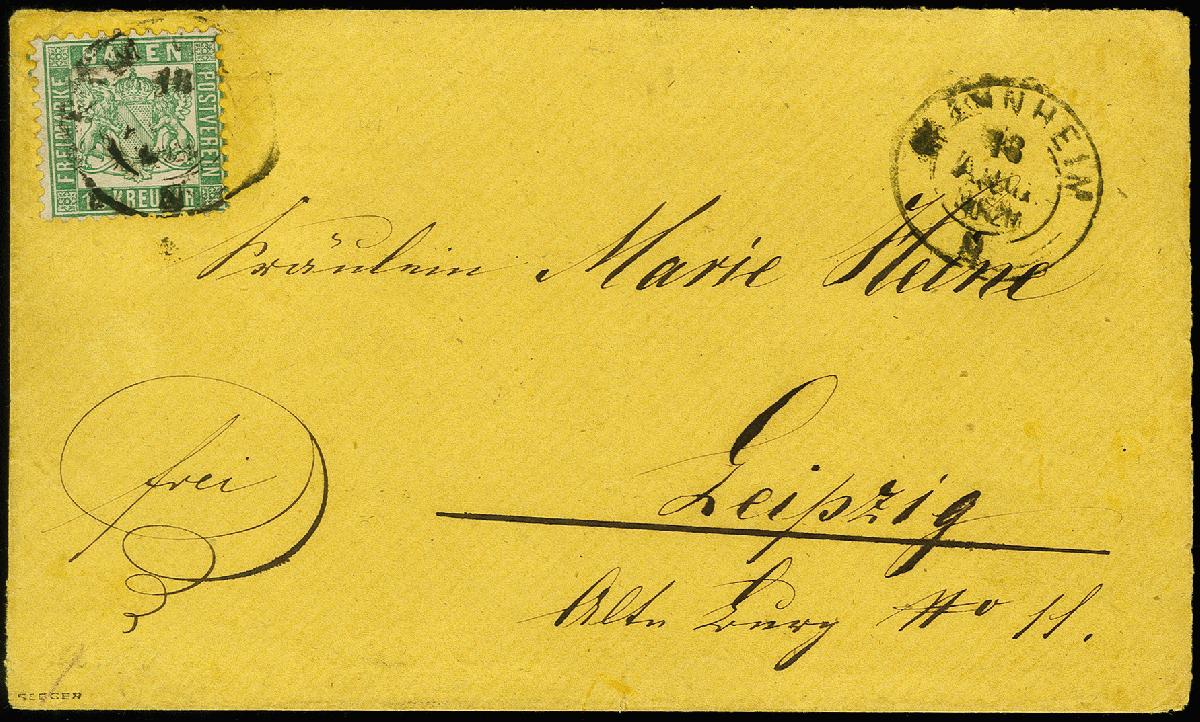 BADEN
FREIMARKE
POSTVEREIN
1 KREUZER
18
MANNHEIM
18
AUG.
Fräulein Marie Heine
frei
Leipzig
Alte Burg No 11.
SEEGER